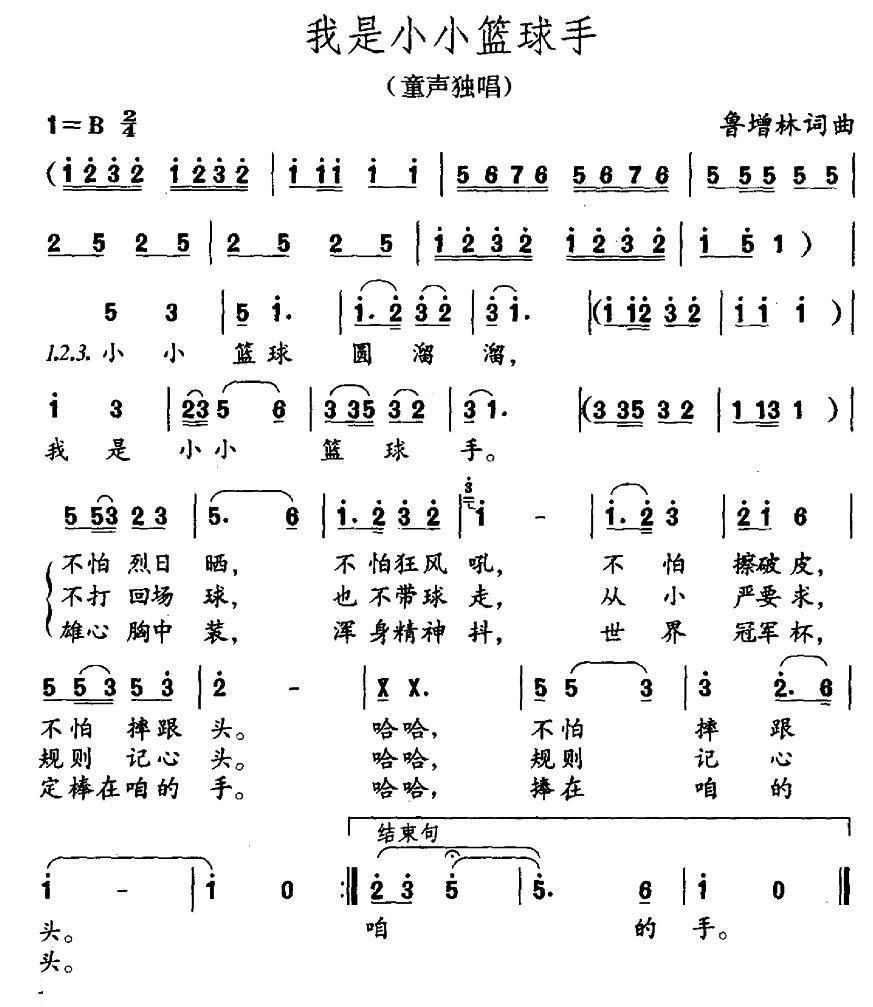 我是小小篮球手
（童声独唱）
1=B 2/4
鲁增林词曲
(1232 1232 | 1 11 1 1 | 5676 5676 | 5 55 5 5 |
2 5 2 5 | 2 5 2 5 | 1232 1232 | 1 5 1 ) |
5 3 | 5 1. | 1.2 32 | 31. |(1 12 3 2 | 1 1 1 ) |
1.2.3. 小 小 篮 球 圆 溜 溜，
1 3 | 23 5 6 | 3 35 3 2 | 3 1. |(3 35 3 2 | 1 13 1 ) |
我 是 小小 篮 球 手。
5 53 2 3 | 5. 6 | 1.2 3 2 | 3 1 - | 1.2 3 | 2 1 6 |
不怕 烈日 晒， 不 怕狂风 吼， 不 怕 擦破 皮，
不打 回场 球， 也 不带球 走， 从 小 严要 求，
雄心 胸中 装， 浑 身精神 抖， 世 界 冠军 杯，
5 53 5 3 | 2 - | X X. | 5 5 3 | 3 2. 6 |
不怕 摔跟 头。 哈哈， 不怕 摔 跟
规则 记心 头。 哈哈， 规则 记 心
定棒在咱的 手。 哈哈， 捧在 咱 的
结束句
1 - | 1 0 :‖ 2 3 5 | 5. 6 | 1 0 ‖
头。 咱 的 手。
头。